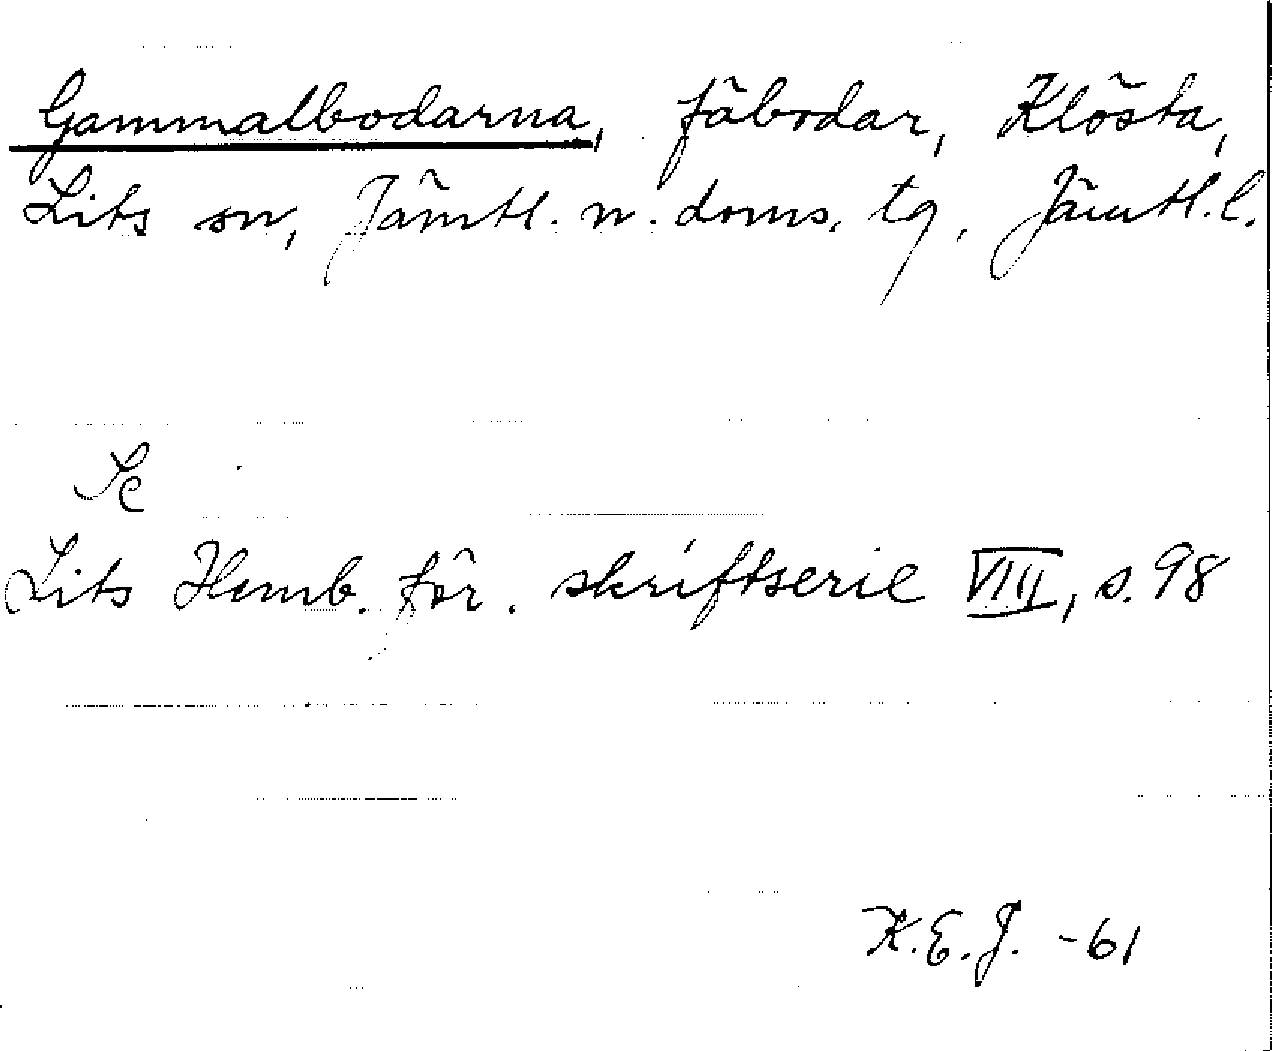 Gammalbodarna, fäbodar, Klösta,
Lits sn, Jämtl. n. doms. tg, Jämtl. l.
Se
Lits Hemb. för. skriftserie VIII, s. 98
K.E.J. -61